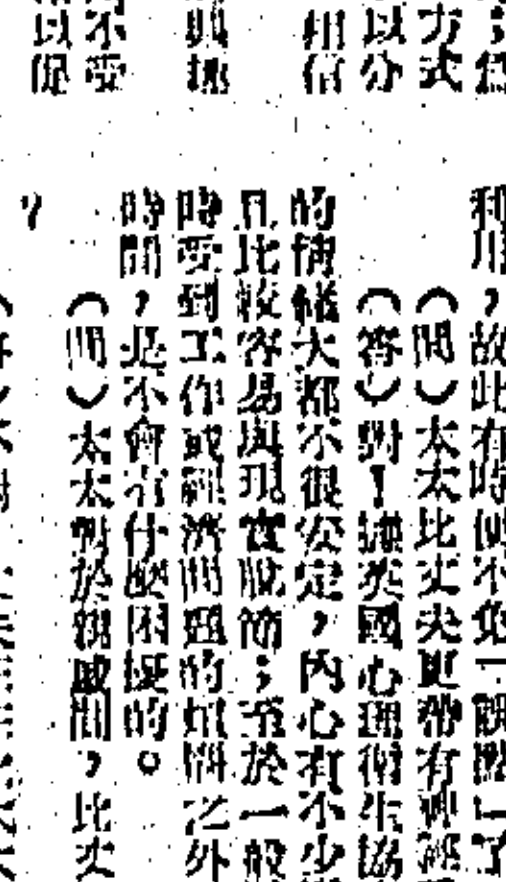 ；為
方式
以分
相信
興趣
不受
以促
利用，故此有時便不免「觀點」了
（問）太太比丈夫更帶有神經
（答）對！據英國心理衛生協
的情緒大都不很安定，內心有不少
且比較容易與現實脫節；至於一般
時受到工作或經濟問題的煩惱之外
時間，是不會有什麼困擾的。
（問）太太對於親戚間，比丈
？